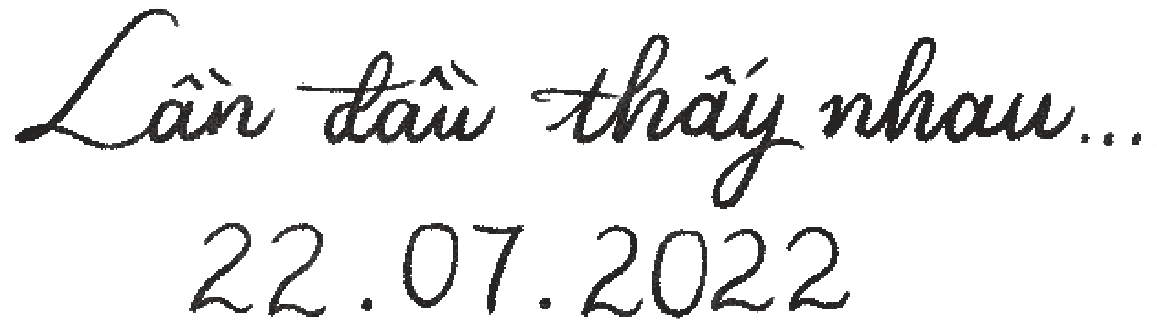 Lần đầu thấy nhau...
22.07.2022